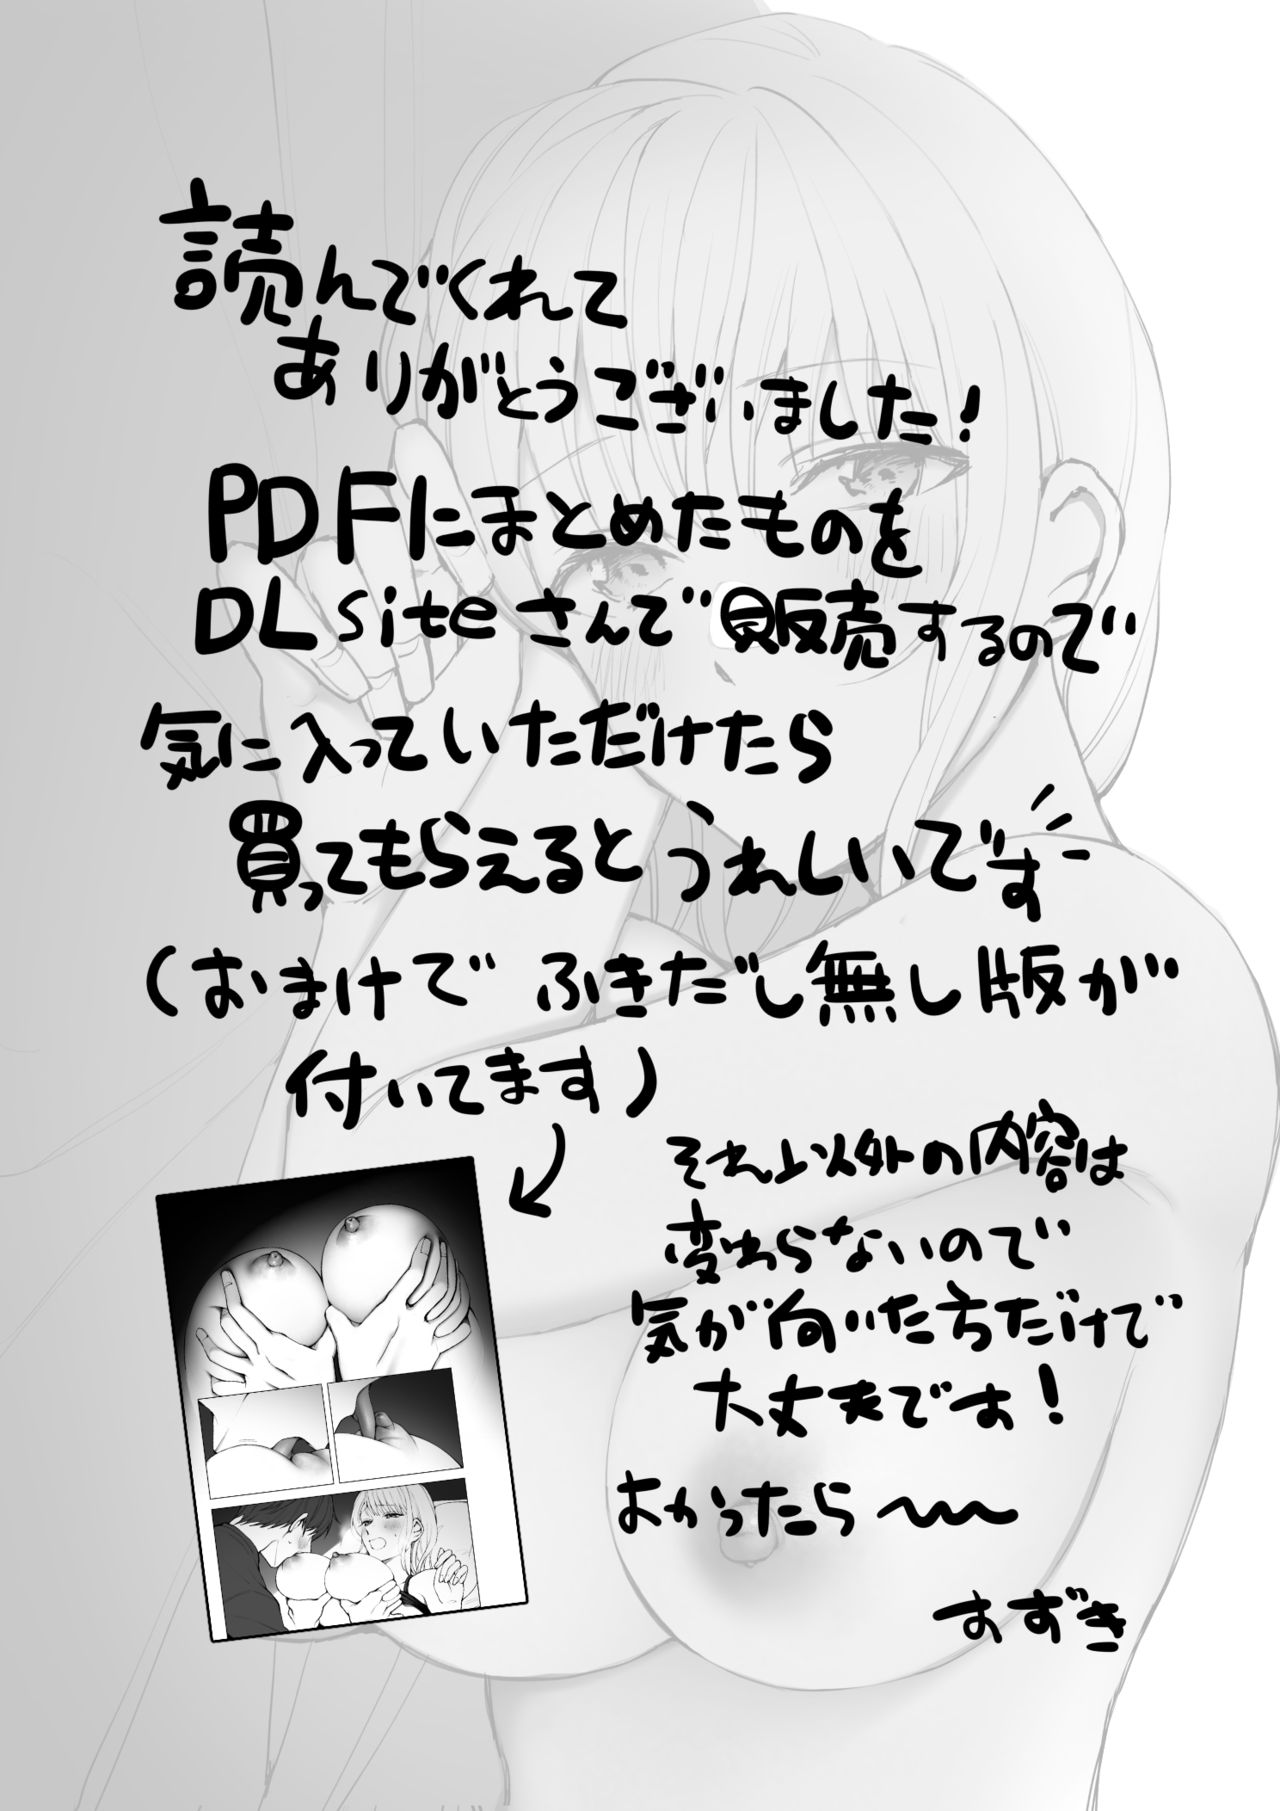 読んでくれて
ありがとうございました!
PDFにまとめたものを
DLsiteさんで販売するので
気に入っていただけたら
買ってもらえるとうれしいです
(おまけで ふきだし無し版が
付いてます)
それ以外の内容は
変わらないので
気が向いた方だけで
大丈夫です!
よかったら〜
すずき